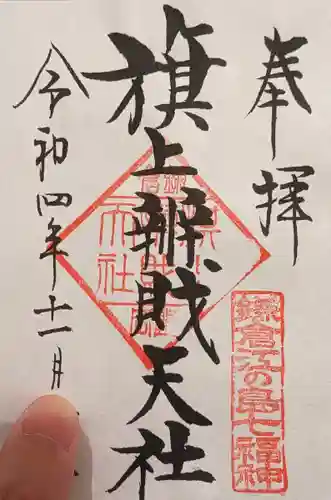 奉拝
鎌倉江の島七福神
旗上辨財天社
令和四年十一月